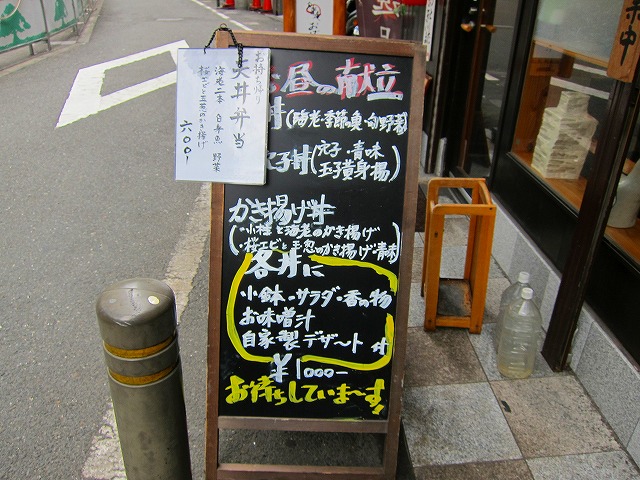 お持ち帰り
天丼弁当
海老二本 白身魚 野菜
桜エビと玉葱のかき揚げ
六〇〇I
お昼の献立
丼(海老・季節の魚・旬野菜)
穴子丼(穴子・青味
玉子黄身揚)
かき揚げ丼
(・小柱と海老のかき揚げ
・桜エビと玉葱のかき揚げ・青味)
各丼に
小鉢・サラダ・香の物
お味噌汁
自家製デザート付
¥1000-
お待ちしていま〜す!